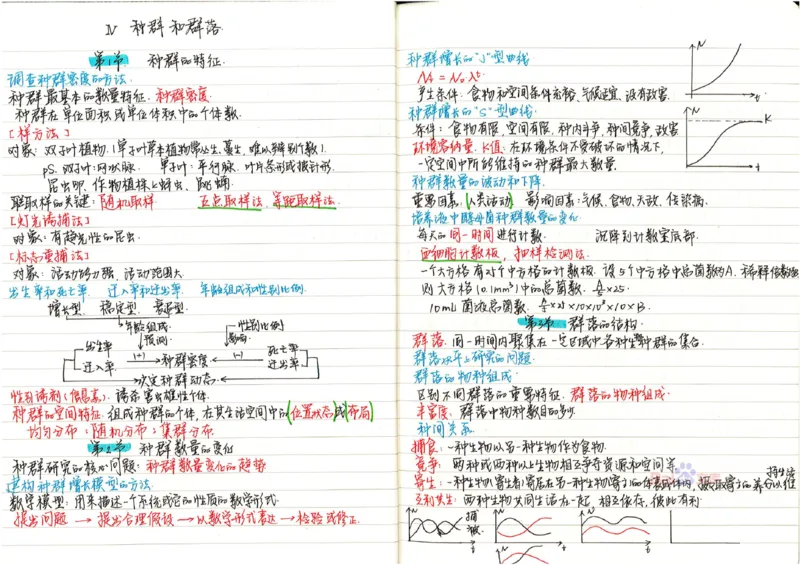 Ⅳ 种群和群落
第1节 种群的特征
调查种群密度的方法
种群最基本的数量特征：种群密度
种群在单位面积或单位体积中的个体数
[样方法]
对象：双子叶植物.(单子叶草本植物常丛生、蔓生，难以辨别个数)
PS. 双子叶：网状脉 单子叶：平行脉.叶片条形或披针形.
昆虫卵.作物植株上蚜虫、跳蝻.
取样的关键：随机取样 五点取样法、等距取样法
[灯光诱捕法]
对象：有趋光性的昆虫.
[标志重捕法]
对象：活动能力强、活动范围大.
出生率和死亡率 迁入率和迁出率 年龄组成和性别比例.
增长型 稳定型 衰退型
年龄组成 性别比例
预测 影响
出生率 (+) 种群密度 (-) 死亡率
迁入率 迁出率
决定种群动态
性引诱剂(信息素) 诱杀害虫雄性个体.
种群的空间特征：组成种群的个体，在其生活空间中的(位置状态)或(布局)
均匀分布：随机分布：集群分布
第2节 种群数量的变化
种群研究的核心问题：种群数量变化的趋势
建构种群增长模型的方法
数学模型：用来描述一个系统或它的性质的数学形式.
提出问题 → 提出合理假设 → 以数学形式表达 → 检验或修正.
种群增长的"J"型曲线
Nt = N₀λᵗ
产生条件：食物和空间条件充裕、气候适宜、没有敌害.
N t
种群增长的"S"型曲线
条件：食物有限，空间有限，种内斗争，种间竞争，敌害
环境容纳量.K值：在环境条件不受破坏的情况下，
一定空间中所能维持的种群最大数量.
N K t
种群数量的波动和下降.
重要因素.(人类活动) 影响因素：气候、食物、天敌、传染病.
培养液中酵母菌种群数量的变化
每天的同一时间进行计数. 沉降到计数室底部.
血细胞计数板，抽样检测法.
一个大方格有25个中方格的计数板.设5个中方格中总菌数为A.稀释倍数为B
则大方格(0.1mm³)中的总菌数.A/5×25.
10mL菌液总菌数.
第3节 群落的结构
群落：同一时间内聚集在一定区域中各种生物种群的集合.
群落水平上研究的问题.
群落的物种组成.
区别不同群落的重要特征：群落的物种组成.
丰富度：群落中物种数目的多少.
种间关系
捕食：一种生物以另一种生物作为食物.
竞争：两种或两种以上生物相互争夺资源和空间等.
寄生：一种生物(寄生者)寄居在另一种生物(寄主)的体内或体表，摄取寄主的养分以维持生活
互利共生：两种生物共同生活在一起，相互依存，彼此有利
N t 捕 被
N t
N t
N